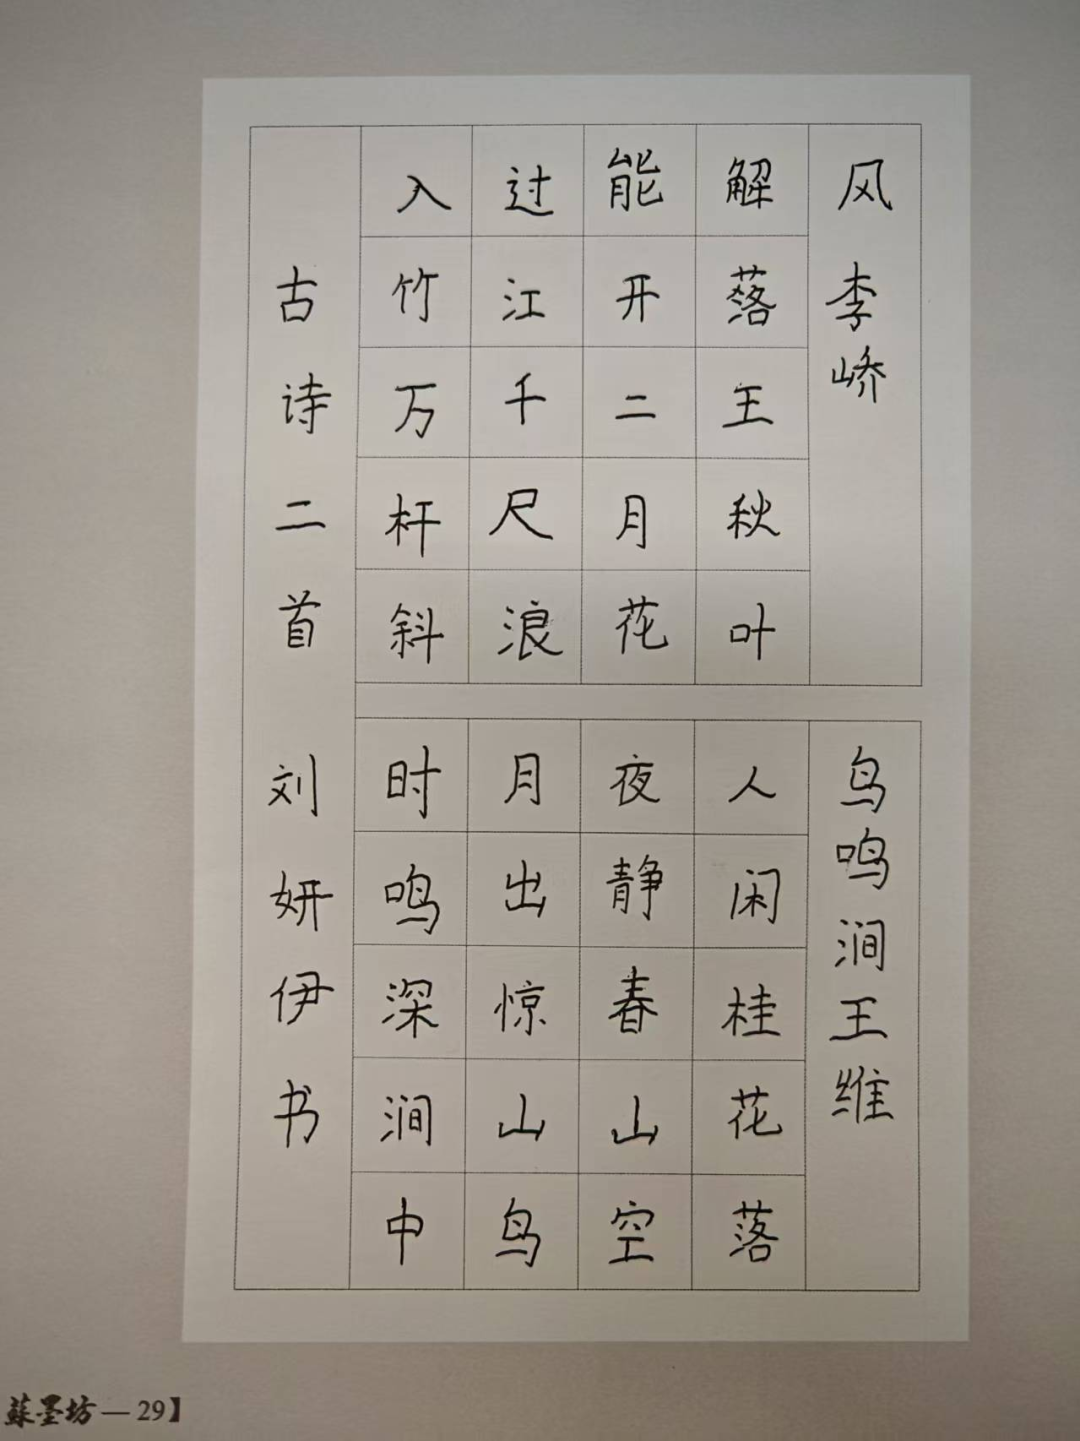 风 李峤
解落王秋叶
能开二月花
过江千尺浪
入竹万杆斜
鸟鸣涧王维
人闲桂花落
夜静春山空
月出惊山鸟
时鸣深涧中
古诗二首 刘妍伊书
蘇墨坊—29】